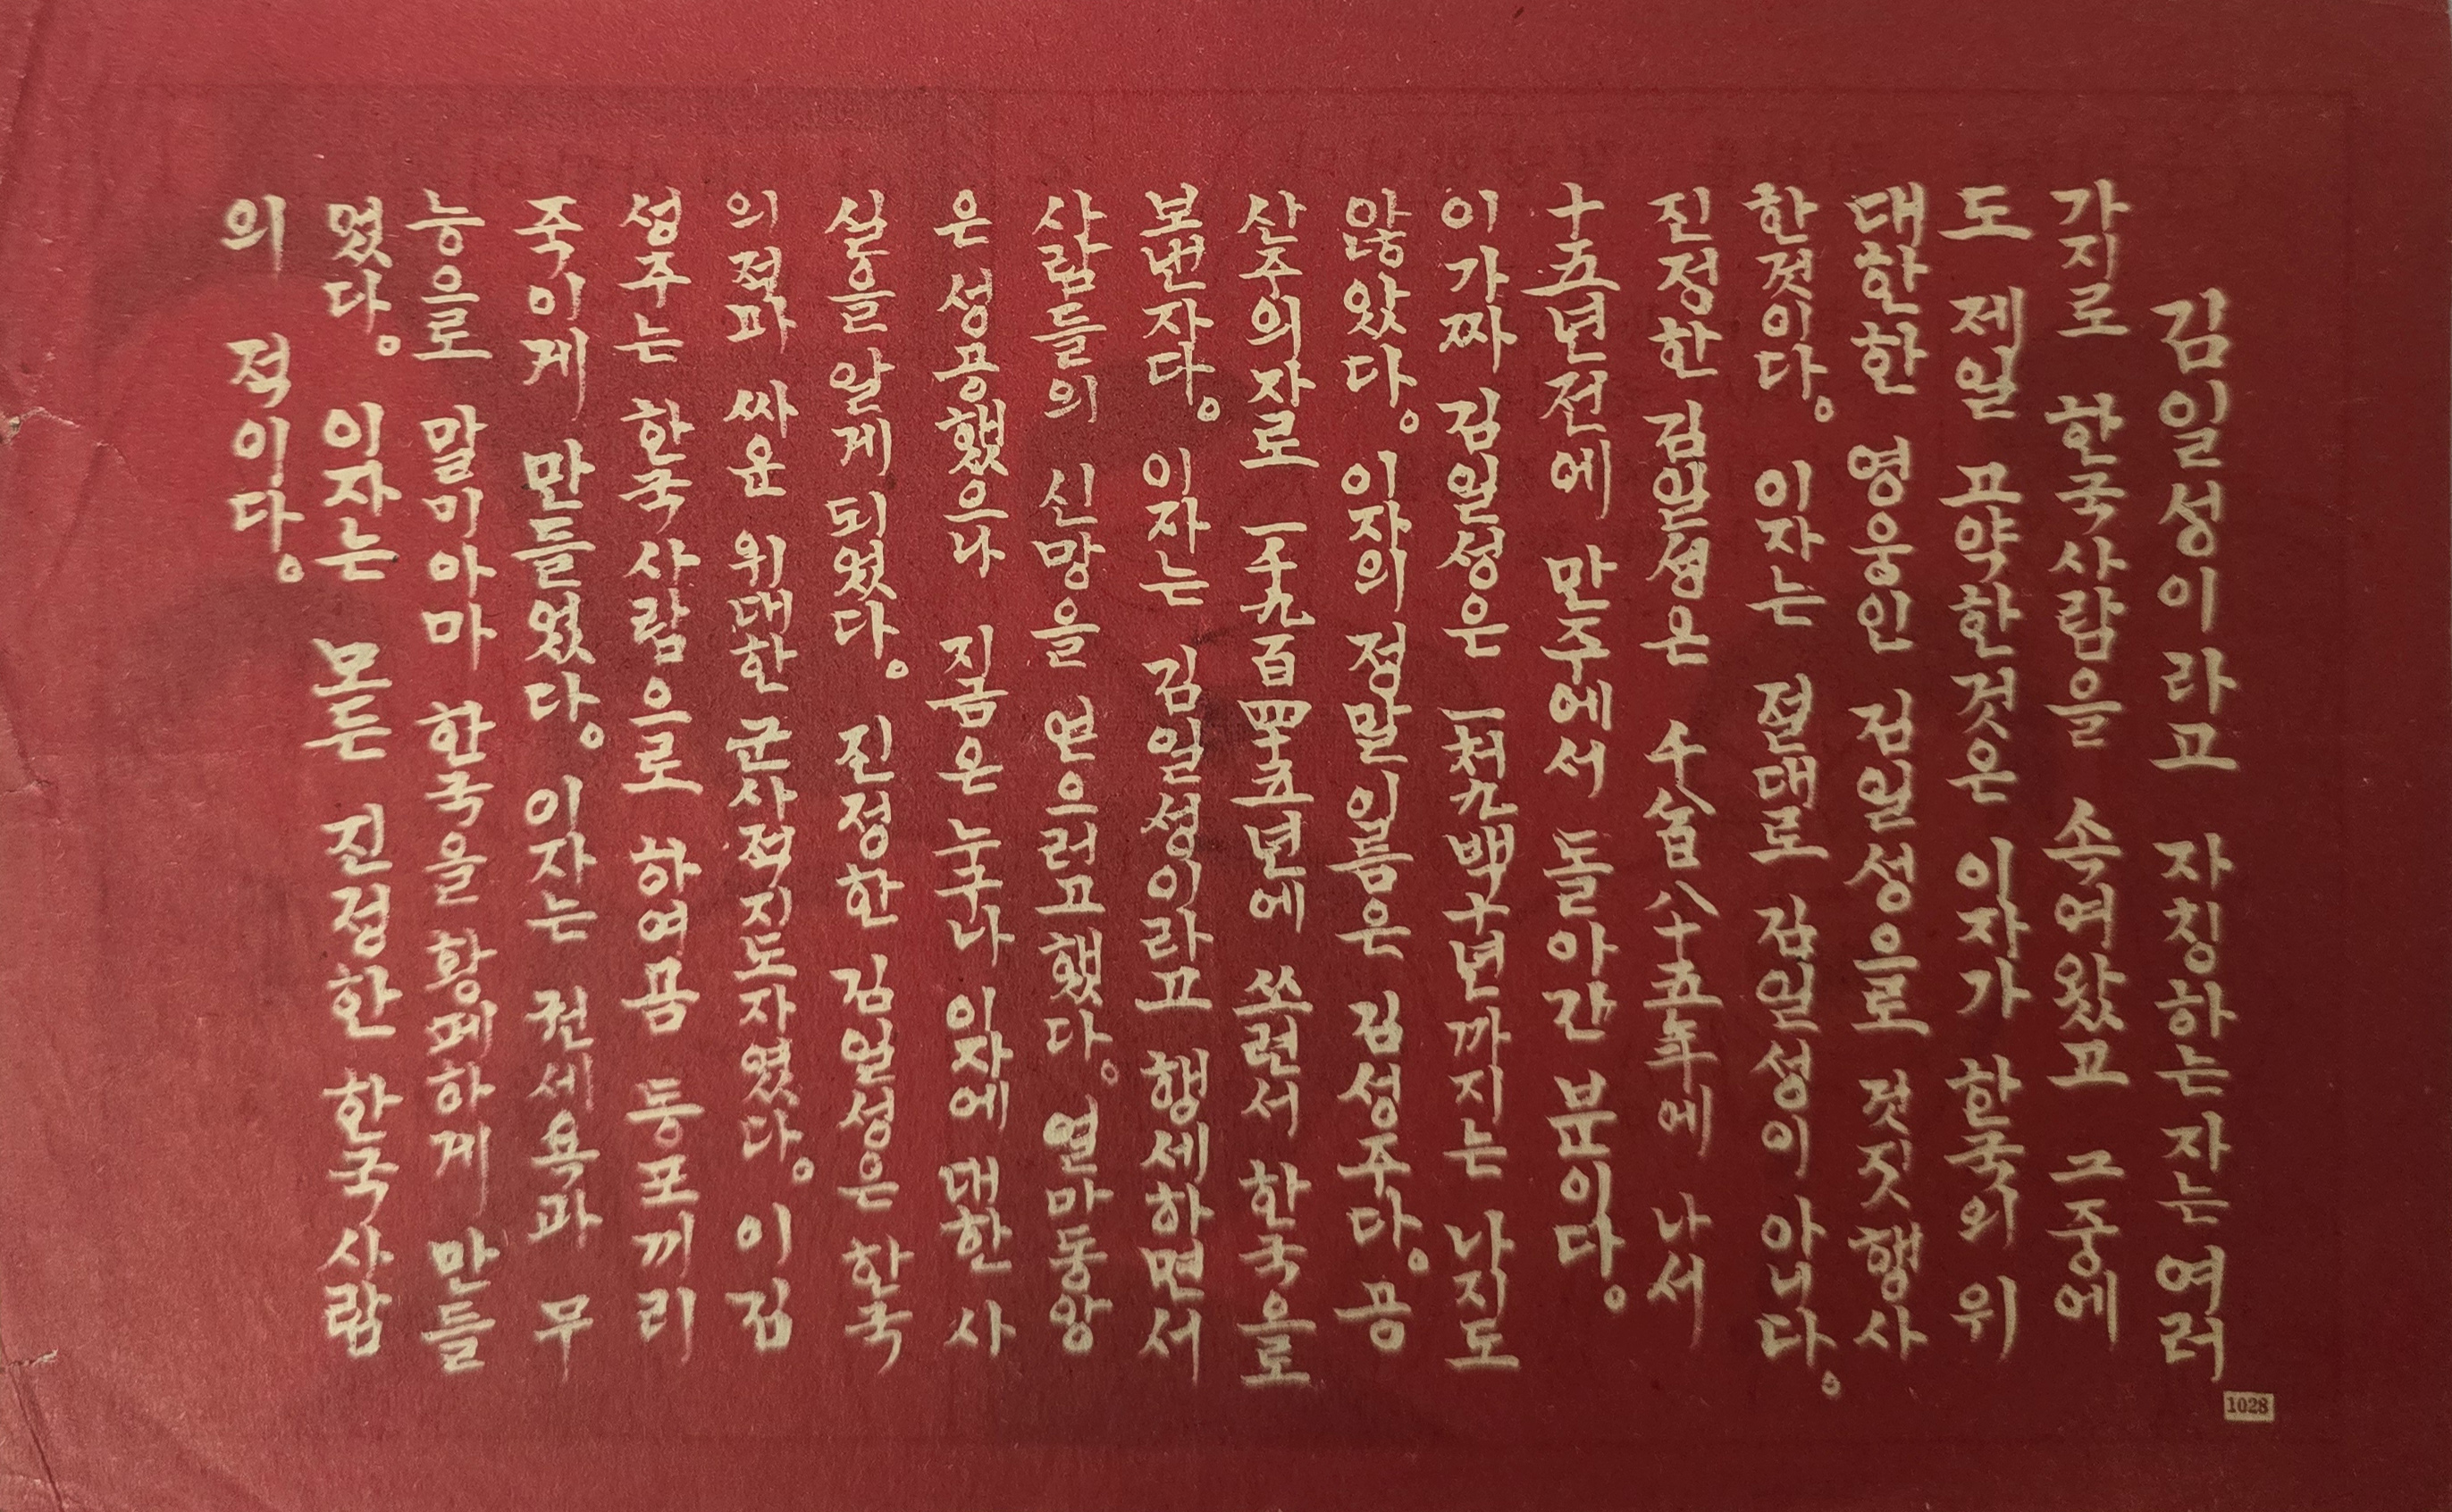 김일성이라고 자칭하는자는 여러
가지로 한국사람을 속여왔고 그중에
도 제일 고약한것은 이자가 한국의 위
대한한 영웅인 김일성으로 것짓행사
한것이다。 이자는 절대로 김일성이 아니다。
진정한 김일성은 千八百八十五年에 나서
十五년전에 만주에서 돌아간 분이다。
이가짜 김일성은 一처九백十년까지는 나지도
않았다。 이자의 정말이름은 김성주다。 공
산주의자로 一千九百四十五년에 쏘련서 한국을로
보낸자다。 이자는 김일성이라고 행세하면서
사람들의 신망을 얻으려고했다。 얼마동앙
은 성공했으나 지금은 누구나 이자에 대한 사
실을 알게되였다。 진정한 김일성은 한국
의 적과 싸운 위대한 군사적지도자였다。 이김
성주는 한국사람으로 하여곰 동포끼리
죽이게 만들었다。 이자는 권세욕과 무
능으로 말미아마 한국을 황폐하게 만들
었다。 이자는 모든 진정한 한국사람
의 적이다。
1028